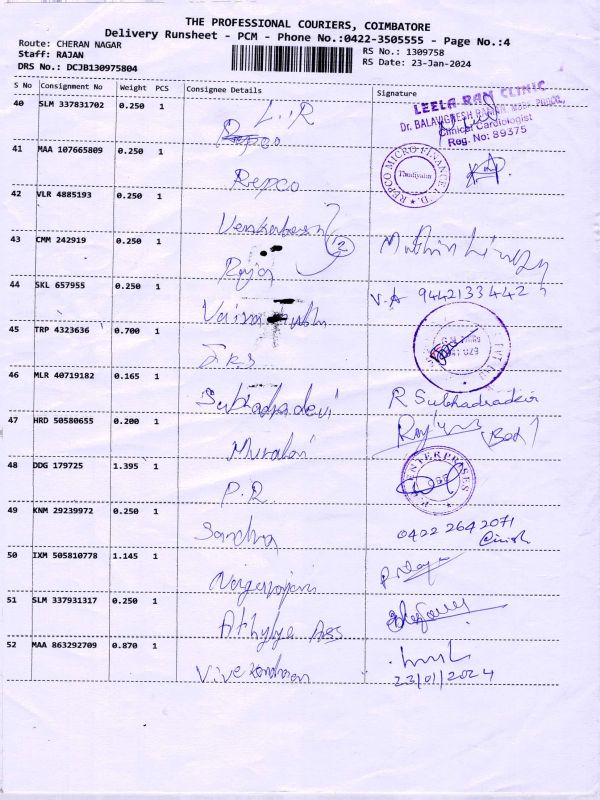 THE PROFESSIONAL COURIERS, COIMBATORE
Delivery Runsheet - PCM - Phone No.:0422-3505555 - Page No.:4
Route: CHERAN NAGAR
RS No.: 1309758
Staff: RAJAN
RS Date: 23-Jan-2024
DRS No.: DCJB130975804
S No Consignment No Weight PCS Consignee Details Signature
40 SLM 337831702 0.250 1 L..R
LEELA RAM CLINIC
Clinical Cardiologist
Reg. No: 89375
Repco
41 MAA 107665809 0.250 1 Repco
REPCO MICRO FINANCE LTD.
42 VLR 4885193 0.250 1 Venkatesan
12
43 CMM 242919 0.250 1 Raja
44 SKL 657955 0.250 1
V.A 9442133442
45 TRP 4323636 0.700 1
PVT LTD
46 MLR 40719182 0.165 1 Subhadradevi R Subhadradevi
47 HRD 50580655 0.200 1 Murali
48 DDG 179725 1.395 1 P.R.
ENTERPRISES
49 KNM 29239972 0.250 1 Sandhya
0422 2642071
50 IXM 505810778 1.145 1 Nagarajan
51 SLM 337931317 0.250 1 Athylya Ass
52 MAA 863292709 0.870 1 Vivekandhan
23/01/2024